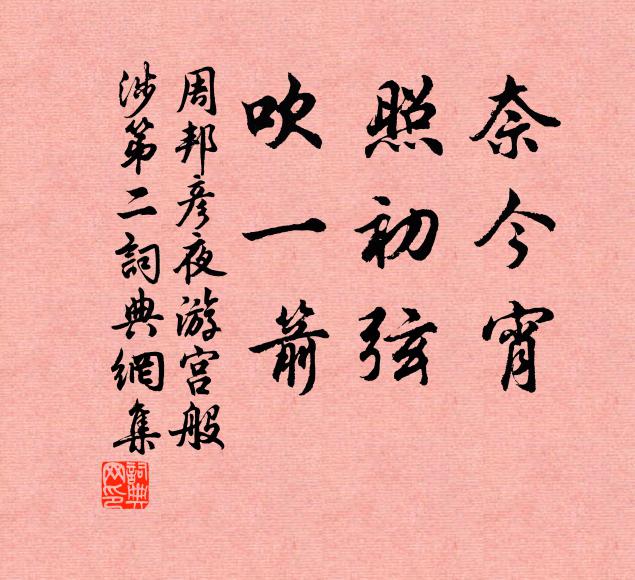 奈今宵
照初弦
吹一箭
周邦彦夜游宫般
涉第二詞典網集
詞典网印